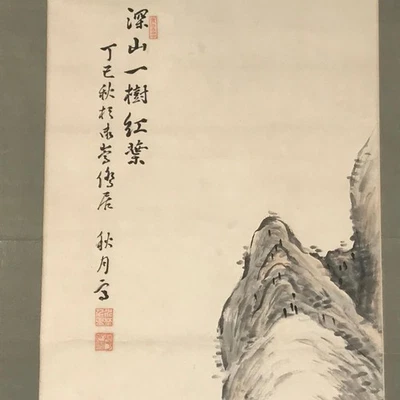 深山一樹紅葉
丁巳秋於
僑居 秋月寫